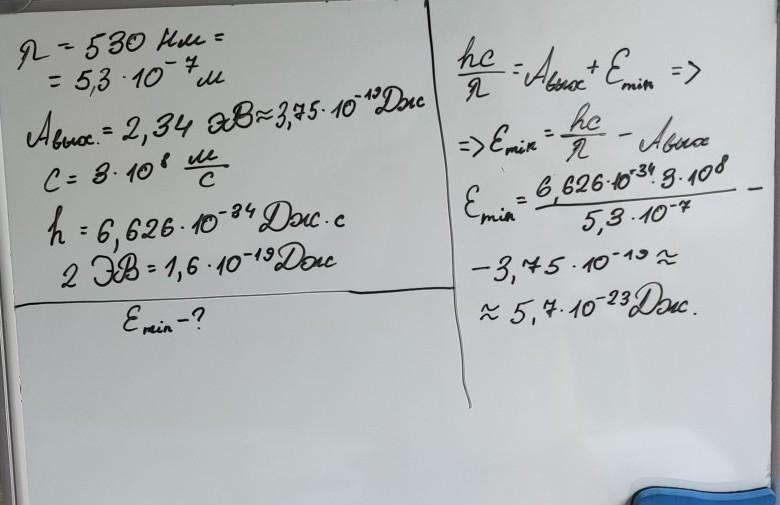 λ = 530 нм =
= 5,3 · 10⁻⁷ м
Aвых. = 2,34 эВ ≈ 3,75 · 10⁻¹⁹ Дж
c = 3 · 10⁸ м/с
h = 6,626 · 10⁻³⁴ Дж · с
2 эВ = 1,6 · 10⁻¹⁹ Дж
Emin - ?
hc/λ = Aвых + Emin =>
=> Emin = hc/λ - Aвых
Emin = 6,626·10⁻³⁴·3·10⁸ / 5,3·10⁻⁷ -
- 3,75 · 10⁻¹⁹ ≈
≈ 5,7 · 10⁻²³ Дж.